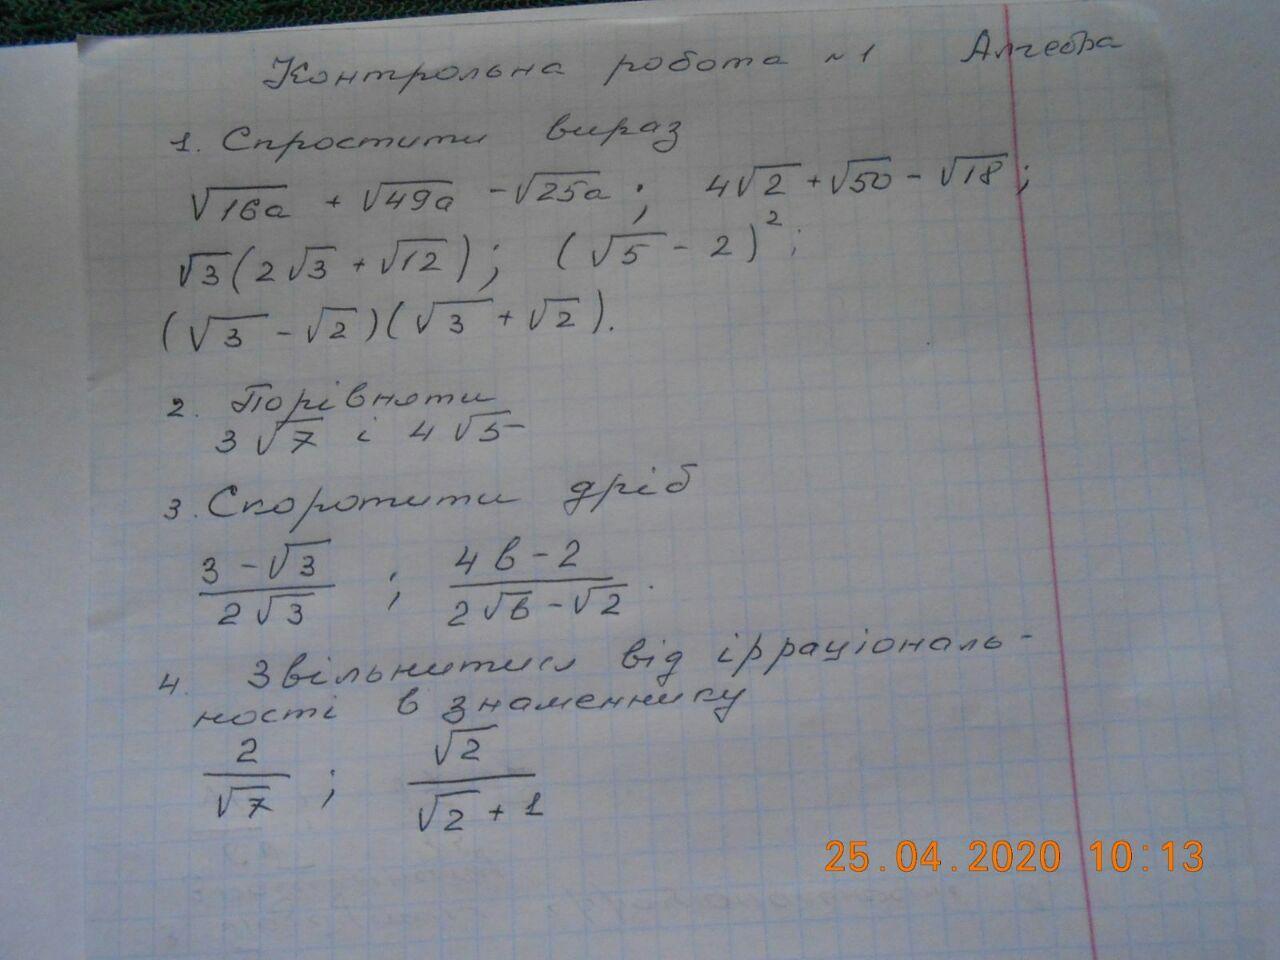 Контрольна робота №1 Алгебра
1. Спростити вираз
√16a + √49a - √25a ; 4√2 + √50 - √18 ;
√3 (2√3 + √12) ; (√5 - 2)² ;
(√3 - √2)(√3 + √2).
2. Порівняти
3√7 і 4√5
3. Скоротити дріб
(3 - √3)/(2√3) ; (4b - 2)/(2√b - √2).
4. Звільнитися від ірраціональ-
ності в знаменнику
2/√7 ; √2/(√2 + 1)
25.04.2020 10:13